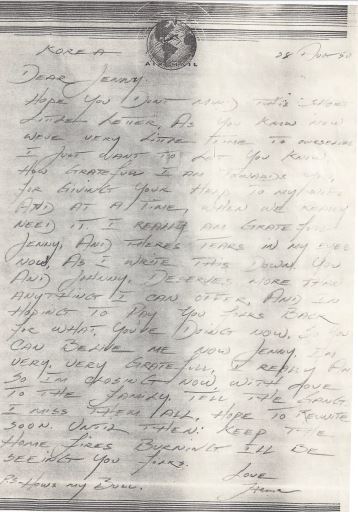 AIR MAIL
KOREA
28
DEAR JENNY.
HOPE YOU DONT MIND THIS SHORT
LITTLE LETTER, AS YOU KNOW NOW
WE'VE VERY LITTLE TIME TO OURSELVES
I JUST WANT TO LET YOU KNOW
HOW GRATEFULL I AM TOWARDS YOU,
FOR GIVING YOUR HELP TO MY WIFE,
AND AT A TIME, WHEN WE REALLY
NEED IT I REALLY AM GRATEFULL
JENNY, AND THERES TEARS IN MY EYES
NOW, AS I WRITE THIS DOWN. YOU
AND JOHNNY. DESERVES MORE THAN
ANYTHING I CAN OFFER, AND IN
HOPING TO PAY YOU FOLKS BACK
FOR WHAT, YOU'VE DOING NOW. SO YOU
CAN BELIVE ME NOW JENNY. I'M
VERY, VERY GRATEFULL, I REALLY AM
SO I'M CLOSING NOW WITH LOVE
TO THE FAMILY. TELL THE GANG
I MISS THEM ALL, HOPE TO REUNITE
SOON. UNTIL THEN: KEEP THE
HOME FIRES BURNING I'LL BE
SEEING YOU FOLKS.
LOVE
PS-HOWS MY BULL.